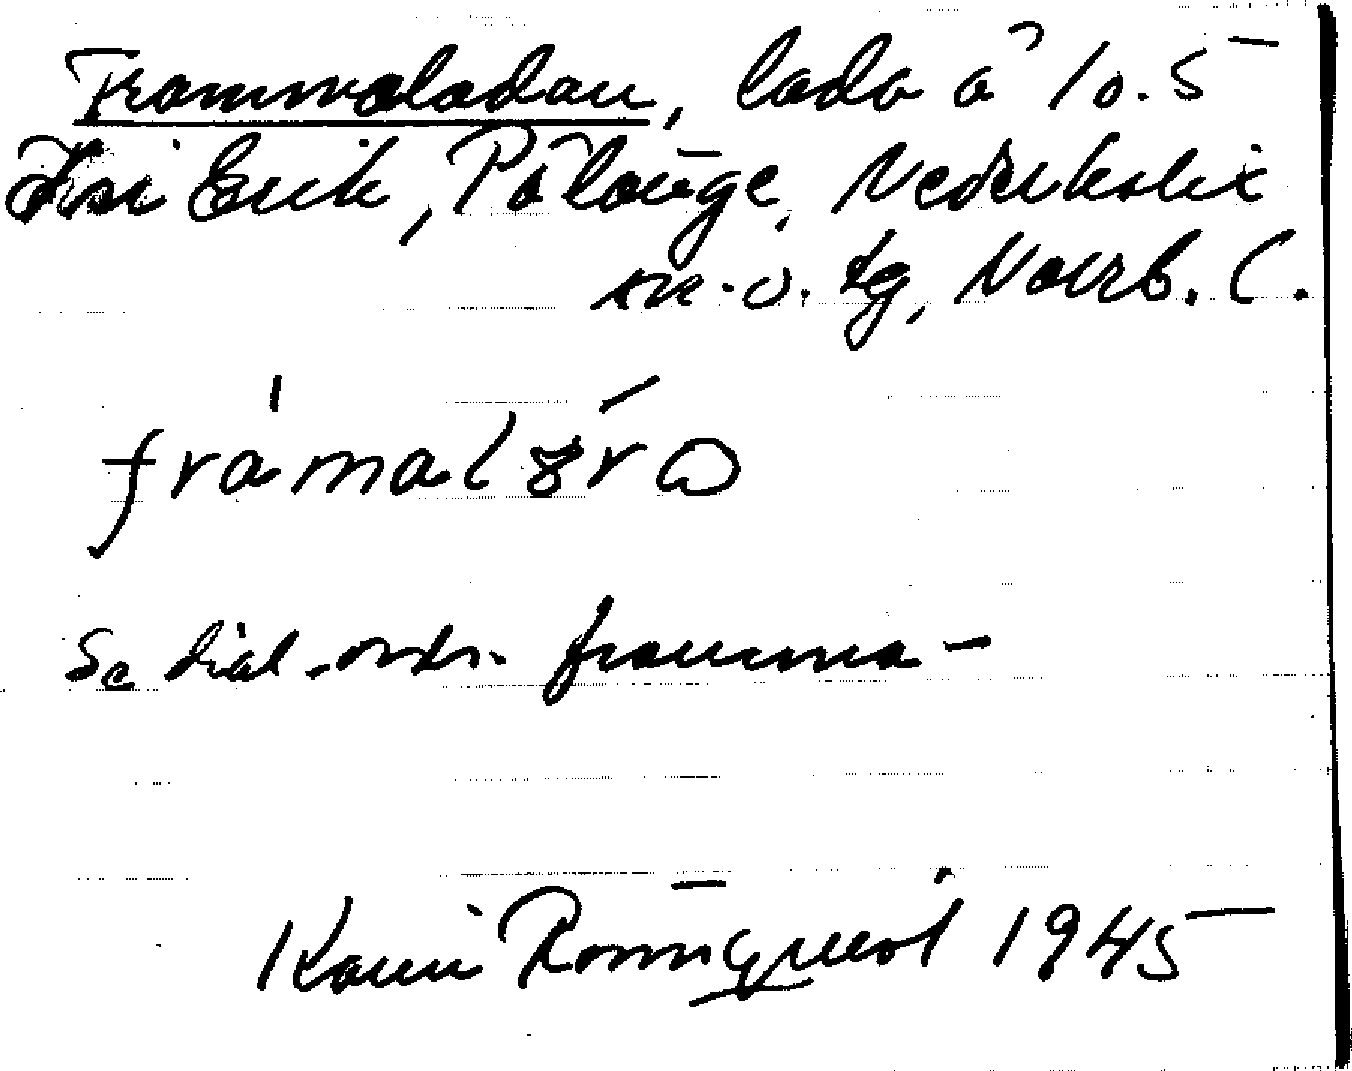 Frammaladan, lada å 10.5
Erik, Pålänge, Nederkalix
sn. o. tg, Norrb. l.
Se dial.-ordr. framma-
Karin Rönnqvist 1945